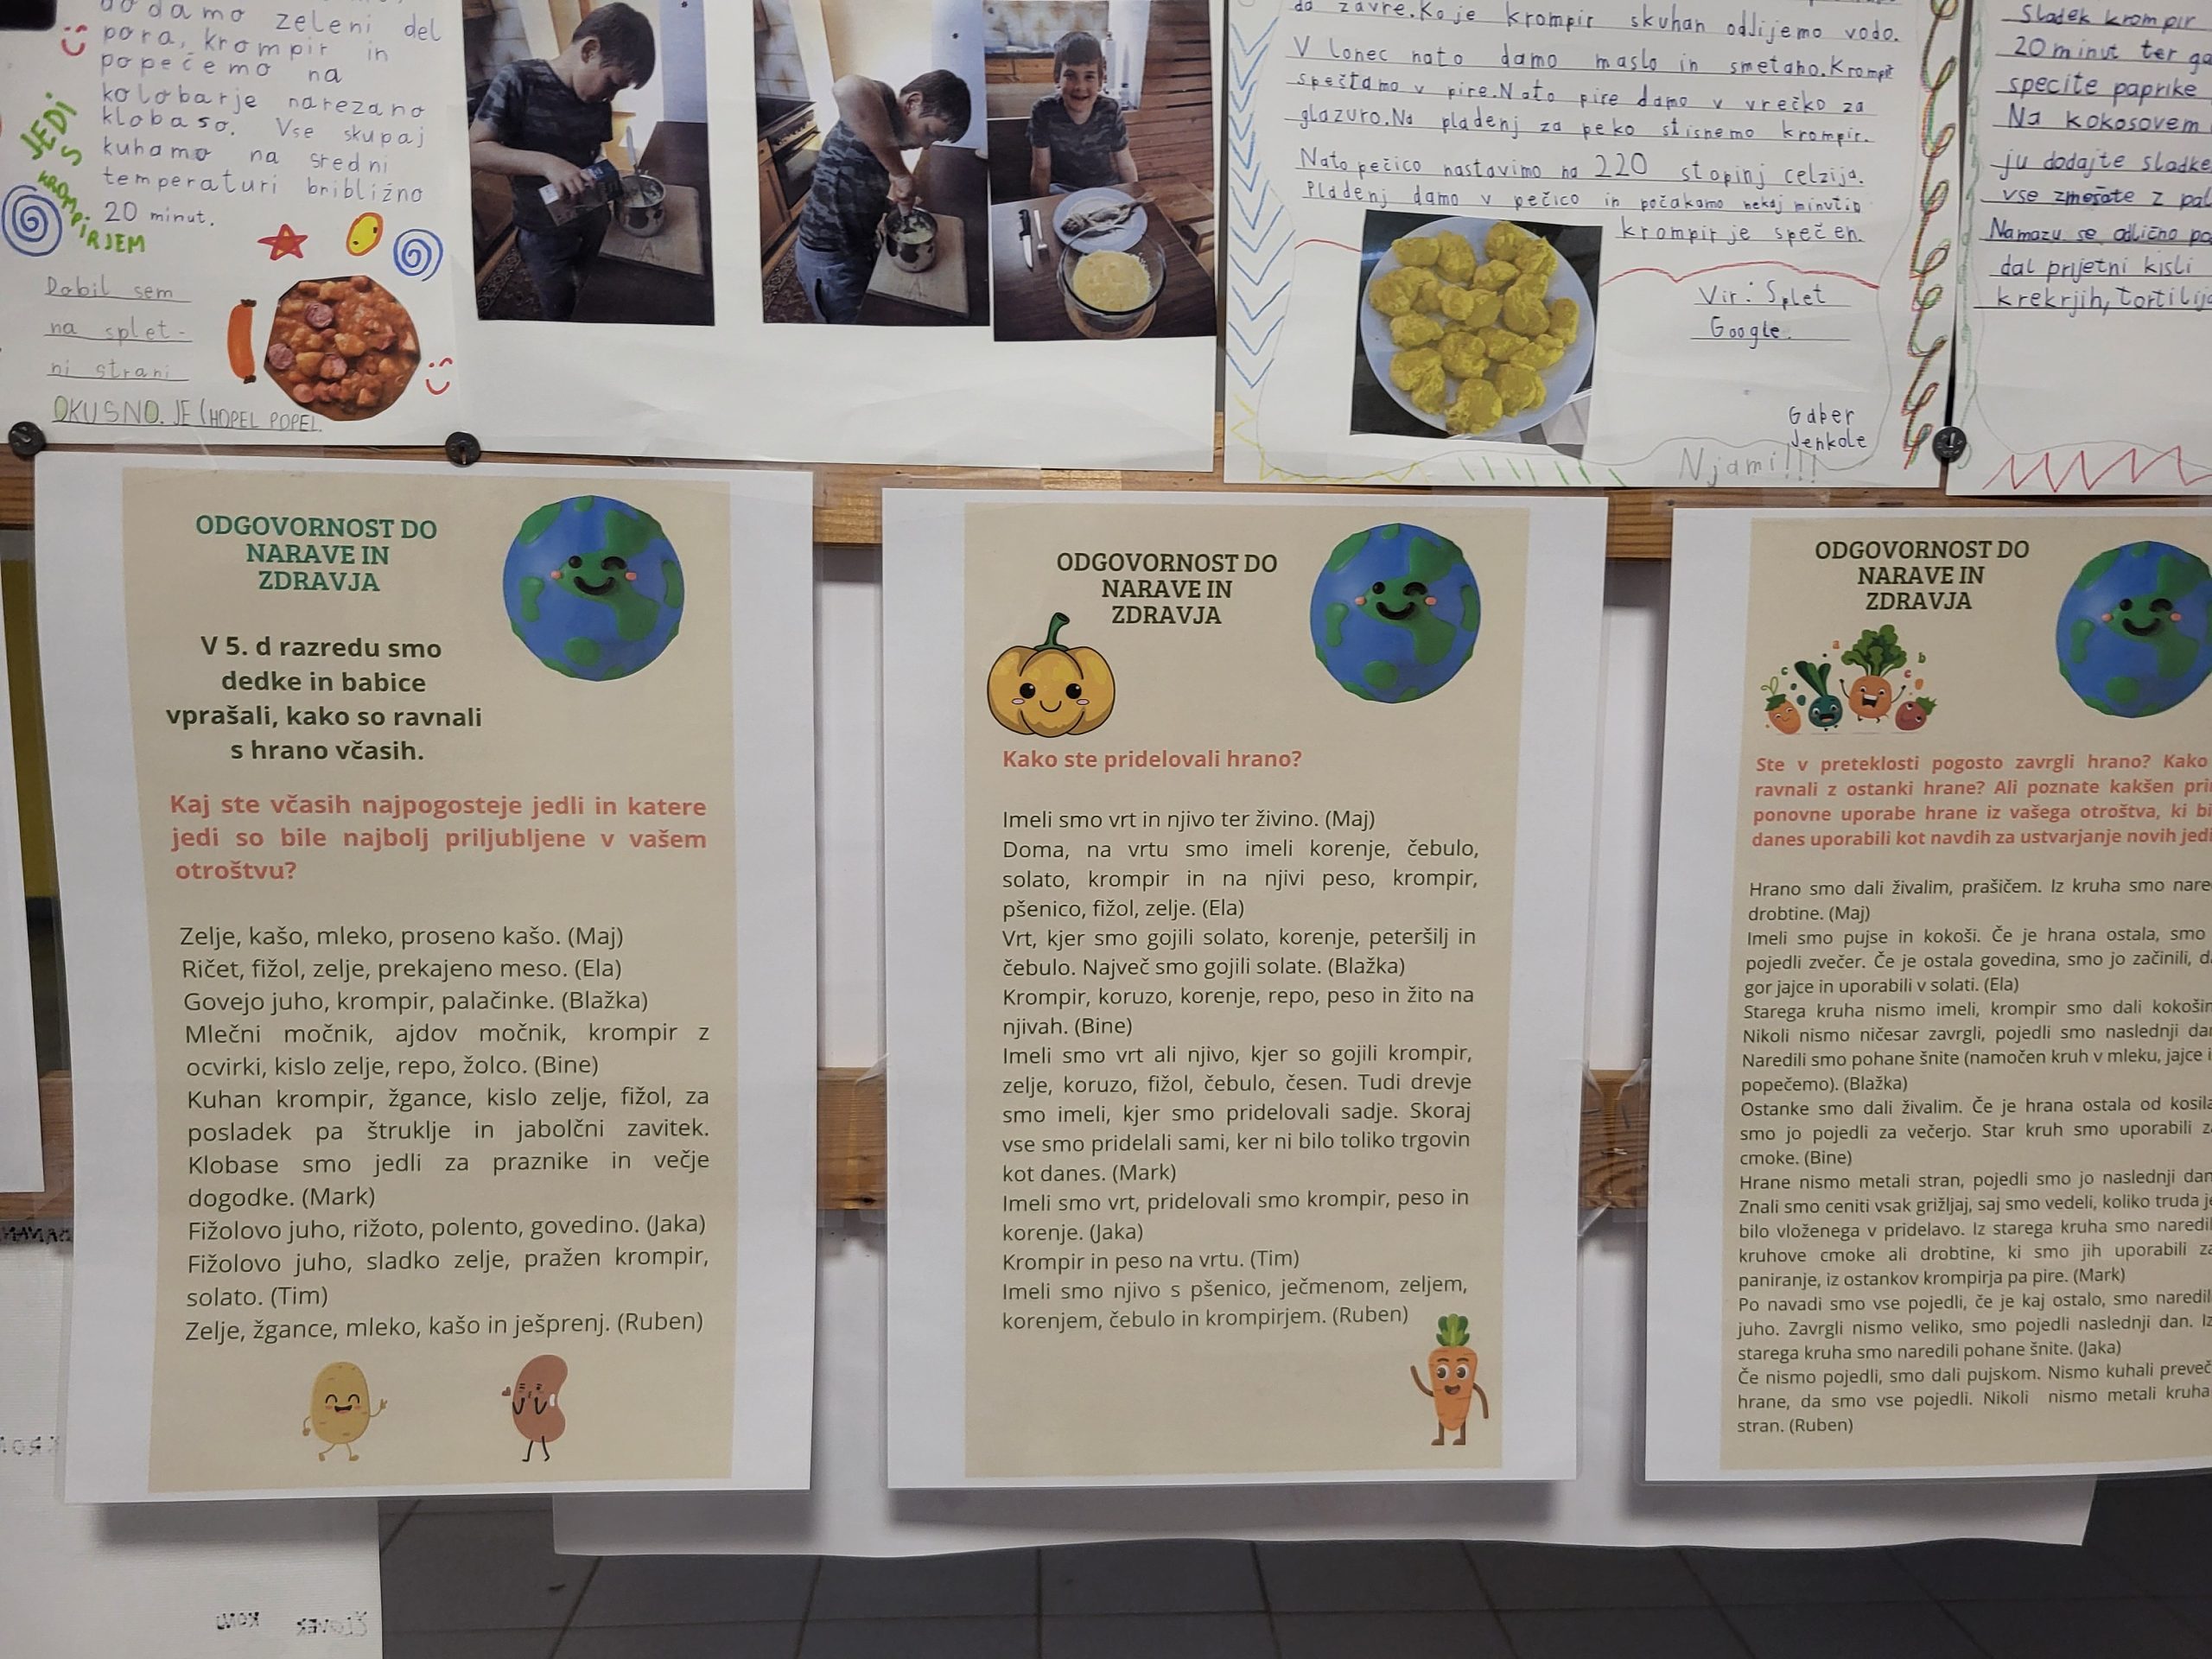 dodamo zeleni del
pora, krompir in
popečemo na
kolobarje narezano
klobaso. Vse skupaj
kuhamo na sredni
temperaturi bribližno
20 minut.
JEDI
S
KROMPIRJEM
Dobil sem
na splet-
ni strani
OKUSNO.JE (HOPEL POPEL.
da zavre. Ko je krompir skuhan odlijemo vodo.
V lonec nato damo maslo in smetano. Krompir
speštamo v pire. Nato pire damo v vrečko za
glazuro. Na pladenj za peko stisnemo krompir.
Nato pečico nastavimo na 220 stopinj celzija.
Pladenj damo v pečico in počakamo nekaj minut in
krompir je spečen.
Vir: Splet
Google.
Gaber
Jenkole
Njami!!!
Sladek krompir
20 minut ter
specite paprike
Na kokosovem
ju dodajte
vse zmešate z
Namaz se odlično
dal prijetni kisli
krekrjih,
ODGOVORNOST DO
NARAVE IN
ZDRAVJA
V 5. d razredu smo
dedke in babice
vprašali, kako so ravnali
s hrano včasih.
Kaj ste včasih najpogosteje jedli in katere
jedi so bile najbolj priljubljene v vašem
otroštvu?
Zelje, kašo, mleko, proseno kašo. (Maj)
Ričet, fižol, zelje, prekajeno meso. (Ela)
Govejo juho, krompir, palačinke. (Blažka)
Mlečni močnik, ajdov močnik, krompir z
ocvirki, kislo zelje, repo, žolco. (Bine)
Kuhan krompir, žgance, kislo zelje, fižol, za
posladek pa štruklje in jabolčni zavitek.
Klobase smo jedli za praznike in večje
dogodke. (Mark)
Fižolovo juho, rižoto, polento, govedino. (Jaka)
Fižolovo juho, sladko zelje, pražen krompir,
solato. (Tim)
Zelje, žgance, mleko, kašo in ješprenj. (Ruben)
ODGOVORNOST DO
NARAVE IN
ZDRAVJA
Kako ste pridelovali hrano?
Imeli smo vrt in njivo ter živino. (Maj)
Doma, na vrtu smo imeli korenje, čebulo,
solato, krompir in na njivi peso, krompir,
pšenico, fižol, zelje. (Ela)
Vrt, kjer smo gojili solato, korenje, peteršilj in
čebulo. Največ smo gojili solate. (Blažka)
Krompir, koruzo, korenje, repo, peso in žito na
njivah. (Bine)
Imeli smo vrt ali njivo, kjer so gojili krompir,
zelje, koruzo, fižol, čebulo, česen. Tudi drevje
smo imeli, kjer smo pridelovali sadje. Skoraj
vse smo pridelali sami, ker ni bilo toliko trgovin
kot danes. (Mark)
Imeli smo vrt, pridelovali smo krompir, peso in
korenje. (Jaka)
Krompir in peso na vrtu. (Tim)
Imeli smo njivo s pšenico, ječmenom, zeljem,
korenjem, čebulo in krompirjem. (Ruben)
ODGOVORNOST DO
NARAVE IN
ZDRAVJA
Ste v preteklosti pogosto zavrgli hrano? Kako
ravnali z ostanki hrane? Ali poznate kakšen
ponovne uporabe hrane iz vašega otroštva, ki
danes uporabili kot navdih za ustvarjanje novih jedi
Hrano smo dali živalim, prašičem. Iz kruha smo
drobtine. (Maj)
Imeli smo pujse in kokoši. Če je hrana ostala, smo
pojedli zvečer. Če je ostala govedina, smo jo začinili,
gor jajce in uporabili v solati. (Ela)
Starega kruha nismo imeli, krompir smo dali
Nikoli nismo ničesar zavrgli, pojedli smo naslednji
Naredili smo pohane šnite (namočen kruh v mleku, jajce
popečemo). (Blažka)
Ostanke smo dali živalim. Če je hrana ostala od kosila
smo jo pojedli za večerjo. Star kruh smo uporabili
cmoke. (Bine)
Hrane nismo metali stran, pojedli smo jo naslednji dan
Znali smo ceniti vsak grižljaj, saj smo vedeli, koliko truda
bilo vloženega v pridelavo. Iz starega kruha smo
kruhove cmoke ali drobtine, ki smo jih uporabili
paniranje, iz ostankov krompirja pa pire. (Mark)
Po navadi smo vse pojedli, če je kaj ostalo, smo
juho. Zavrgli nismo veliko, smo pojedli naslednji dan.
starega kruha smo naredili pohane šnite. (Jaka)
Če nismo pojedli, smo dali pujskom. Nismo kuhali preveč
hrane, da smo vse pojedli. Nikoli nismo metali kruha
stran. (Ruben)